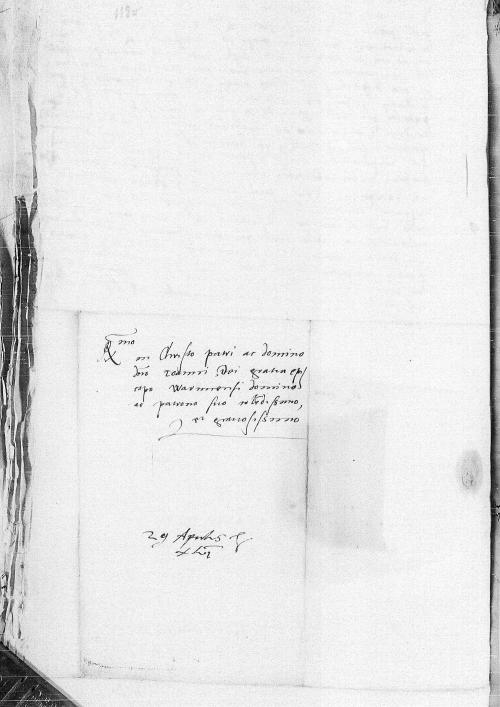 R mo
in Christo patri ac domino
dno Joanni Dei gratia epi
scopo Warmiensi domino
ac patrono suo
et gratiosissimo
29 Aprilis